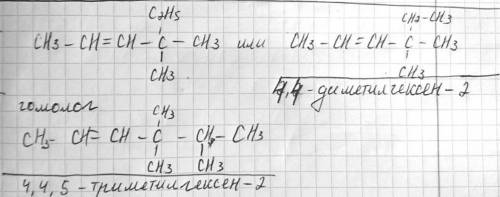 C2H5
CH3-CH=CH-C-CH3 или CH3-CH=CH-C-CH3
CH3
CH2-CH3
CH3
4,4-диметилгексен-2
гомолог
CH3
CH3-CH=CH-C-CH-CH3
CH3 CH3
4,4,5-триметилгексен-2